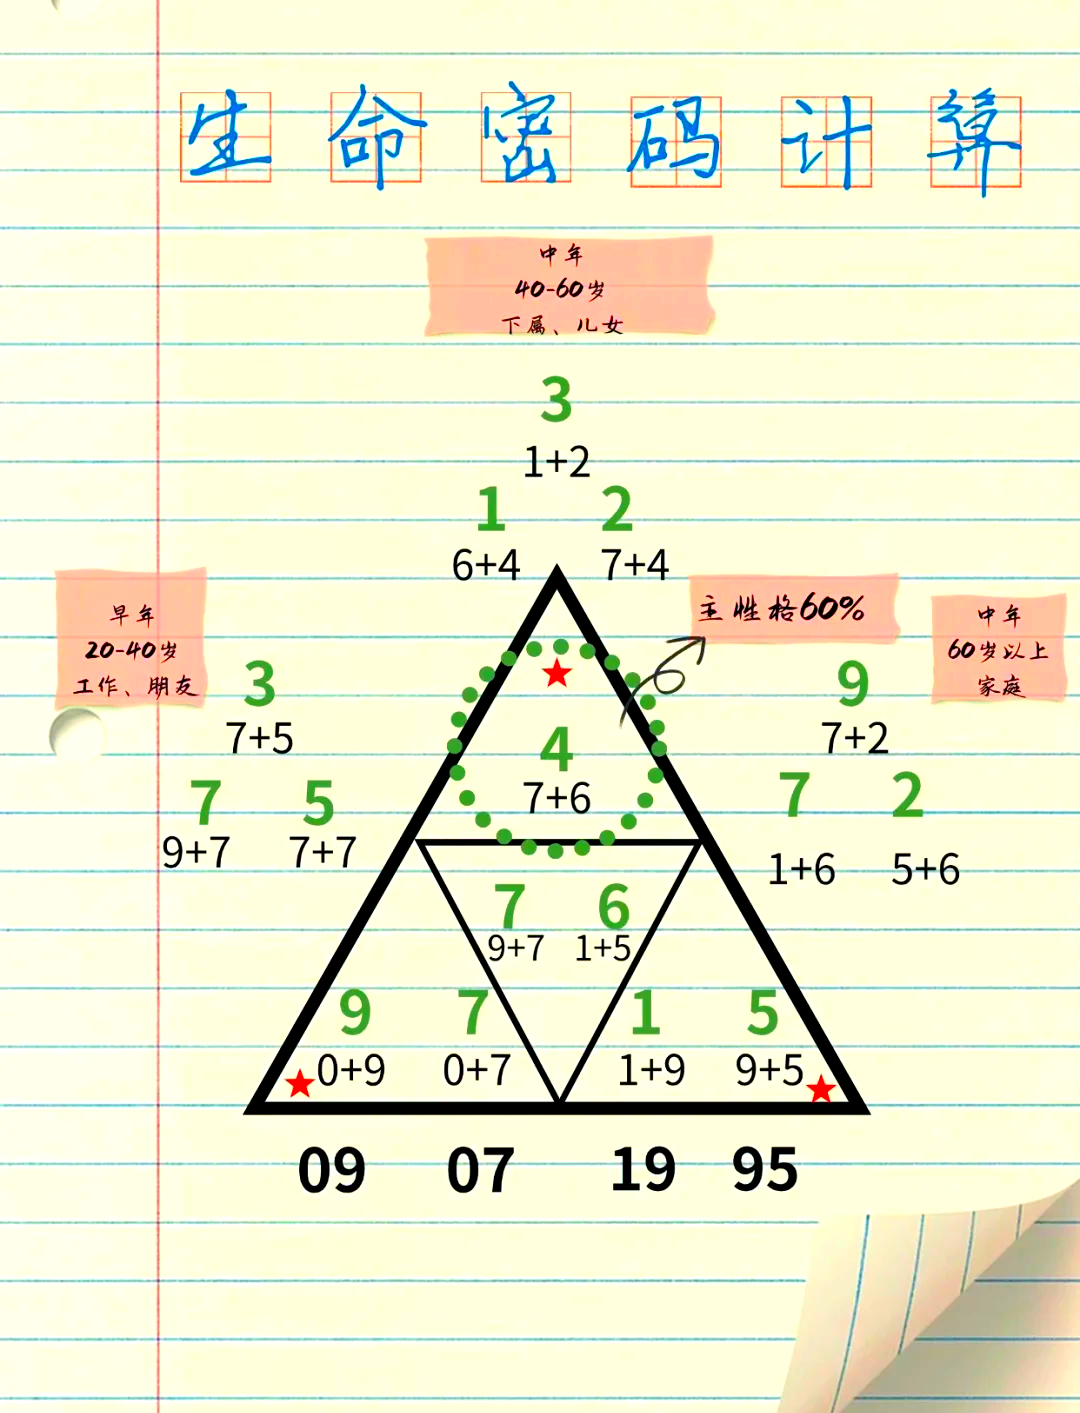 生命密码计算
中年
40-60岁
下属、儿女
3
1+2
1 2
6+4 7+4
早年
20-40岁
工作、朋友
主性格60%
中年
60岁以上
家庭
3
7+5
7 5
9+7 7+7
4
7+6
9
7+2
7 2
1+6 5+6
7 6
9+7 1+5
9 7 1 5
0+9 0+7 1+9 9+5
09 07 19 95